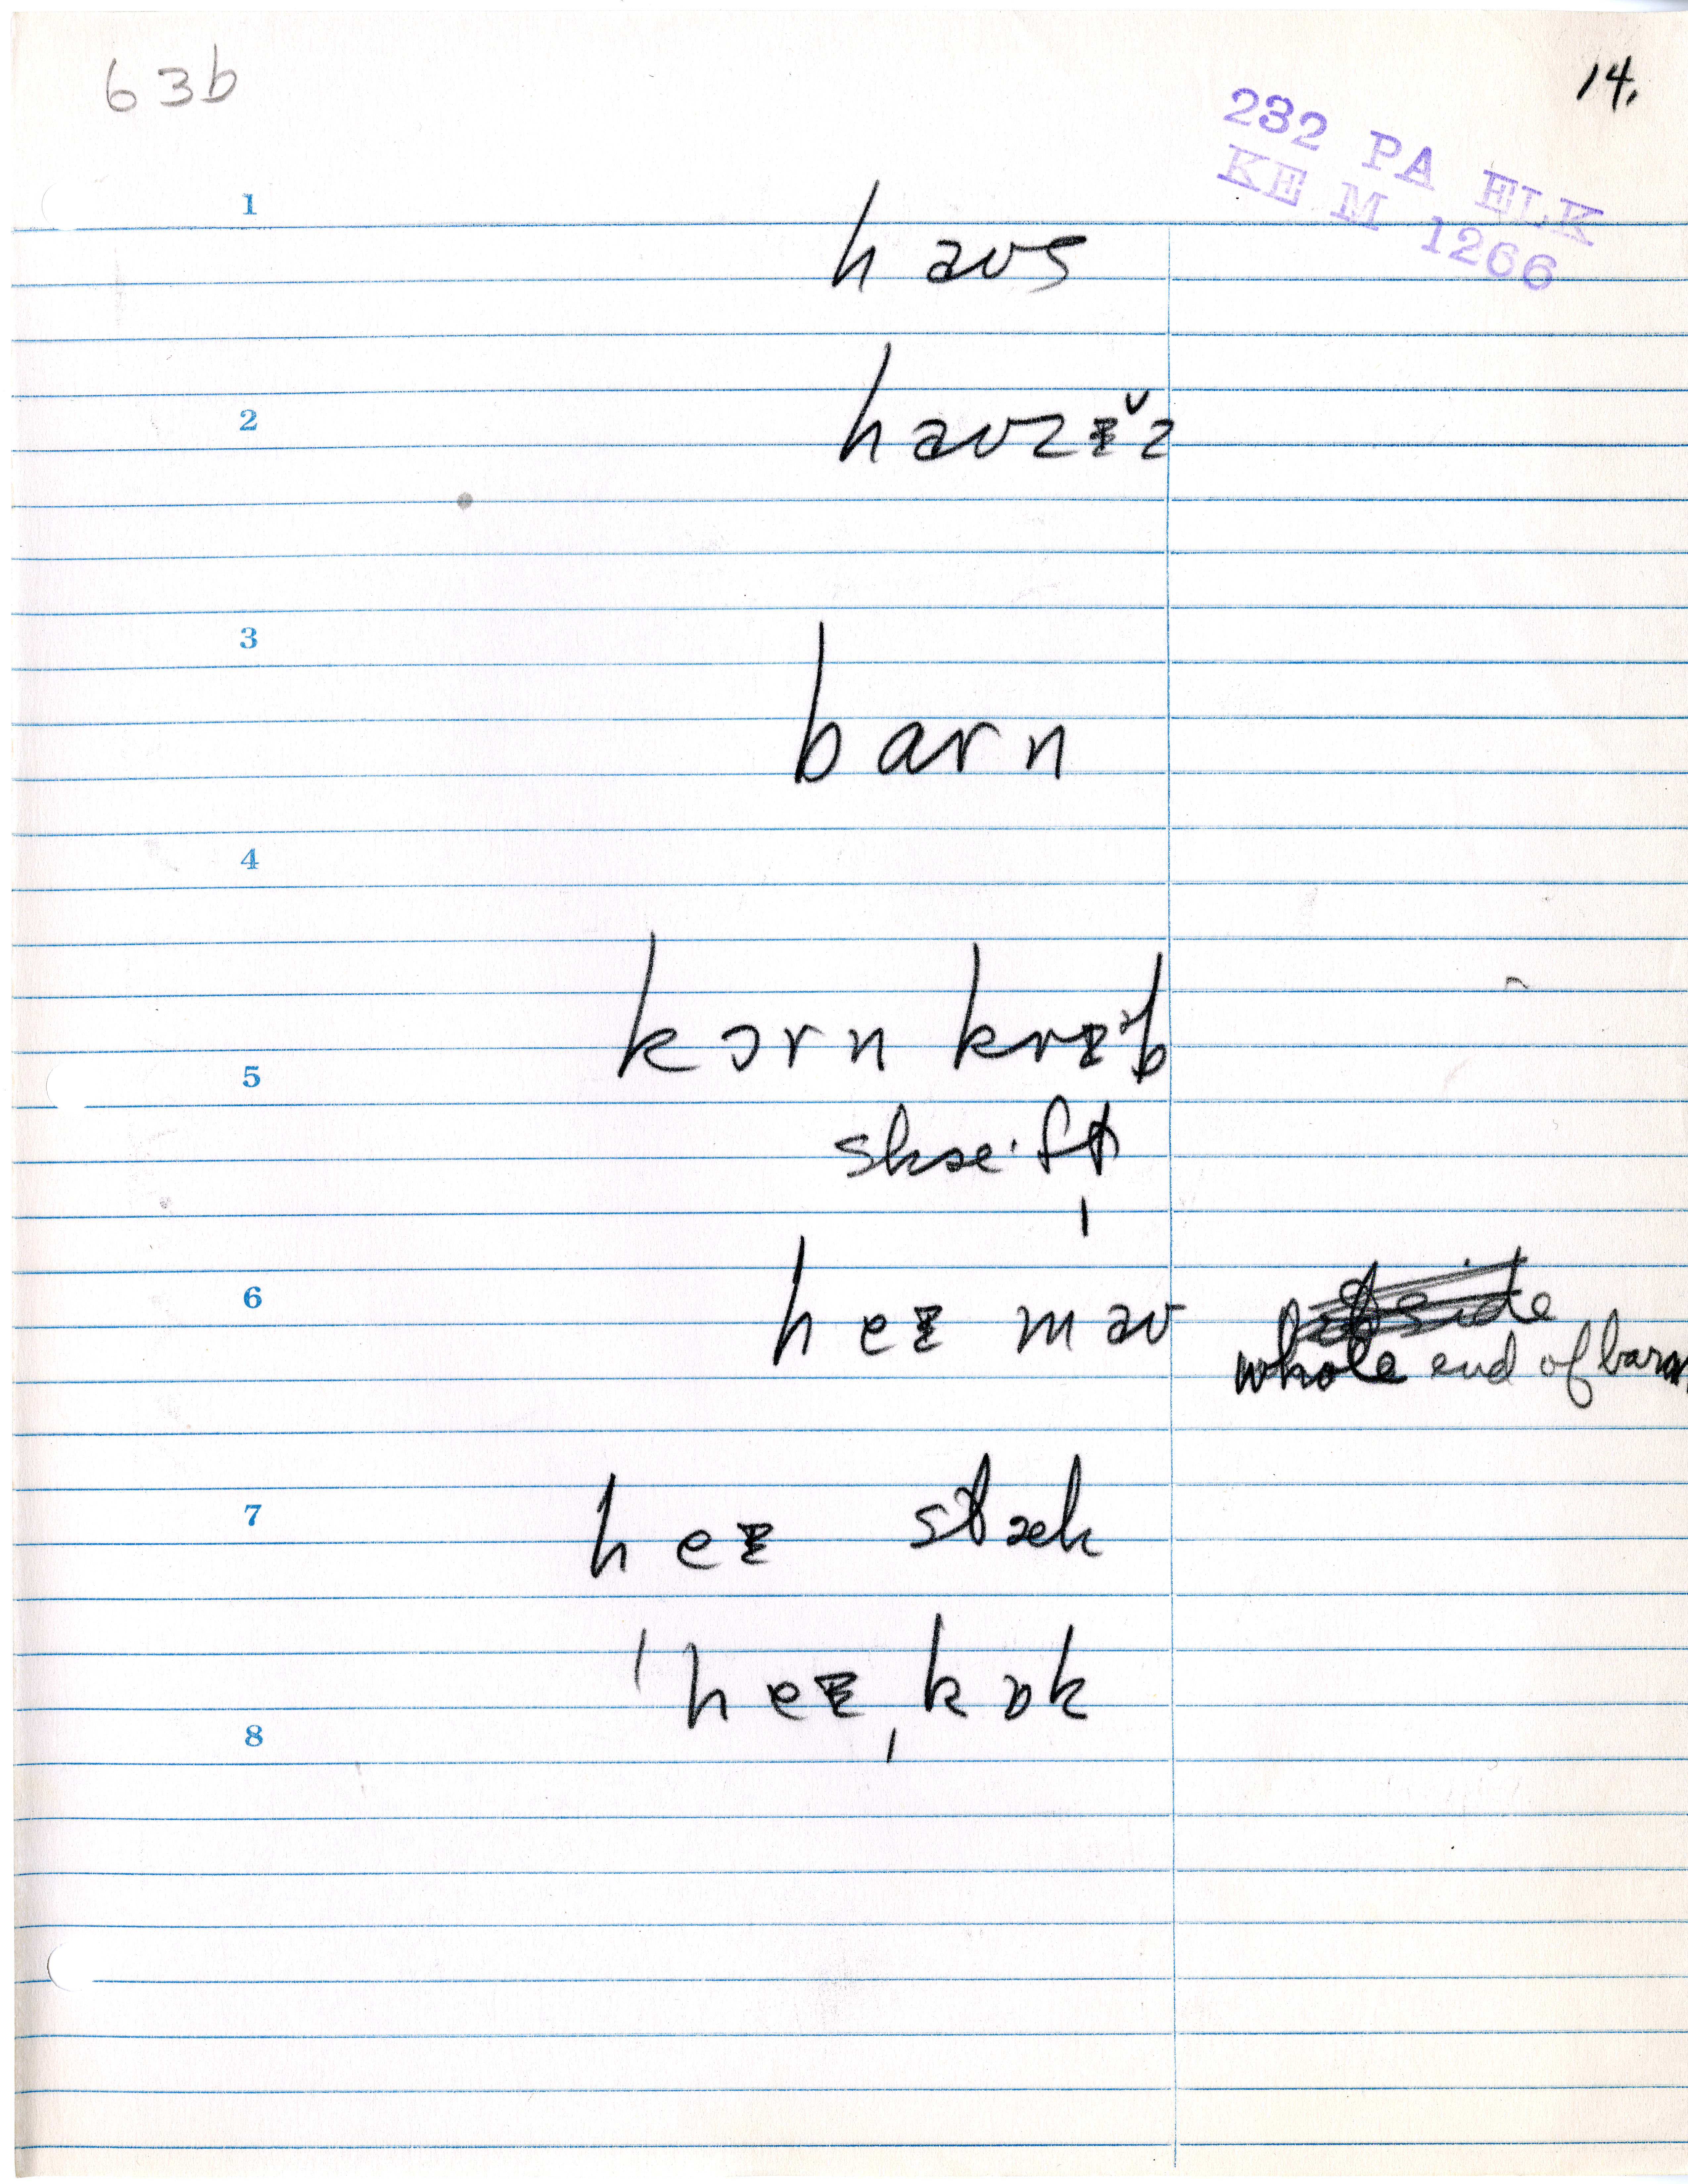 63b
14.
232 PA ELK
KE M 1266
1
haʊs
2
haʊzɪ̆z
3
barn
4
kɔrn krɪᵊb
5
skæ·ft
6
heɪ maʊ
whole end of barn
7
heɪ stæk
ˈheɪˌkɒk
8